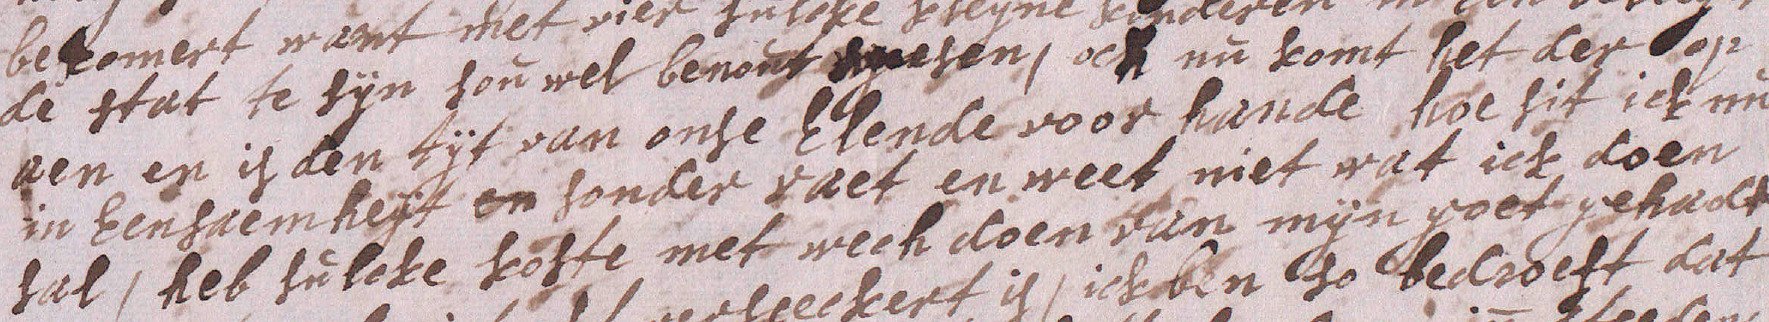 bekomert want met vier sulcke kleyne kinderen in een
de stat te sijn sou wel benout wesen / och nu komt het der op
aen en is den tijt van onse Elende voor hande hoe sit ick nu
in Eensaemheijt en sonder raet en weet niet wat ick doen
sal / heb sulcke koste met wech doen van mijn goet gehadt
verseeckert is / ick ben so bedroeft dat